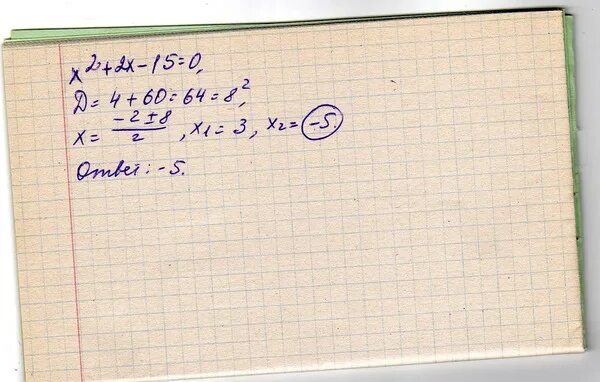 x²+2x-15=0,
D=4+60=64=8²,
x=(-2±8)/2, x₁=3, x₂=-5.
Ответ: -5.